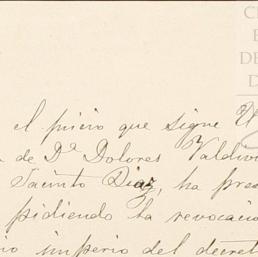 el juicio que sigue
de Dª Dolores Valdivi
Jacinto Diaz, ha pres
pidiendo la revocació
io imperio del decret